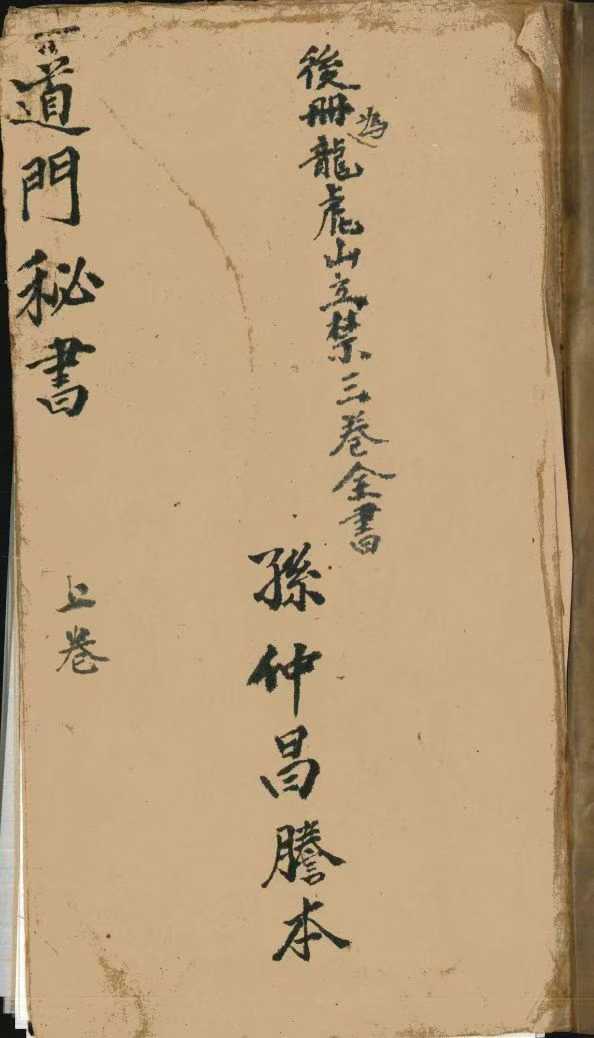 後冊為龍虎山立禁三卷全書
孫仲昌謄本
道門秘書
上卷